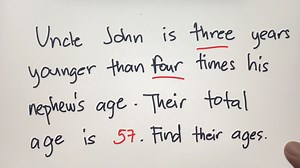 Uncle John is three years
younger than four times his
nephew's age. Their total
age is 57. Find their ages.